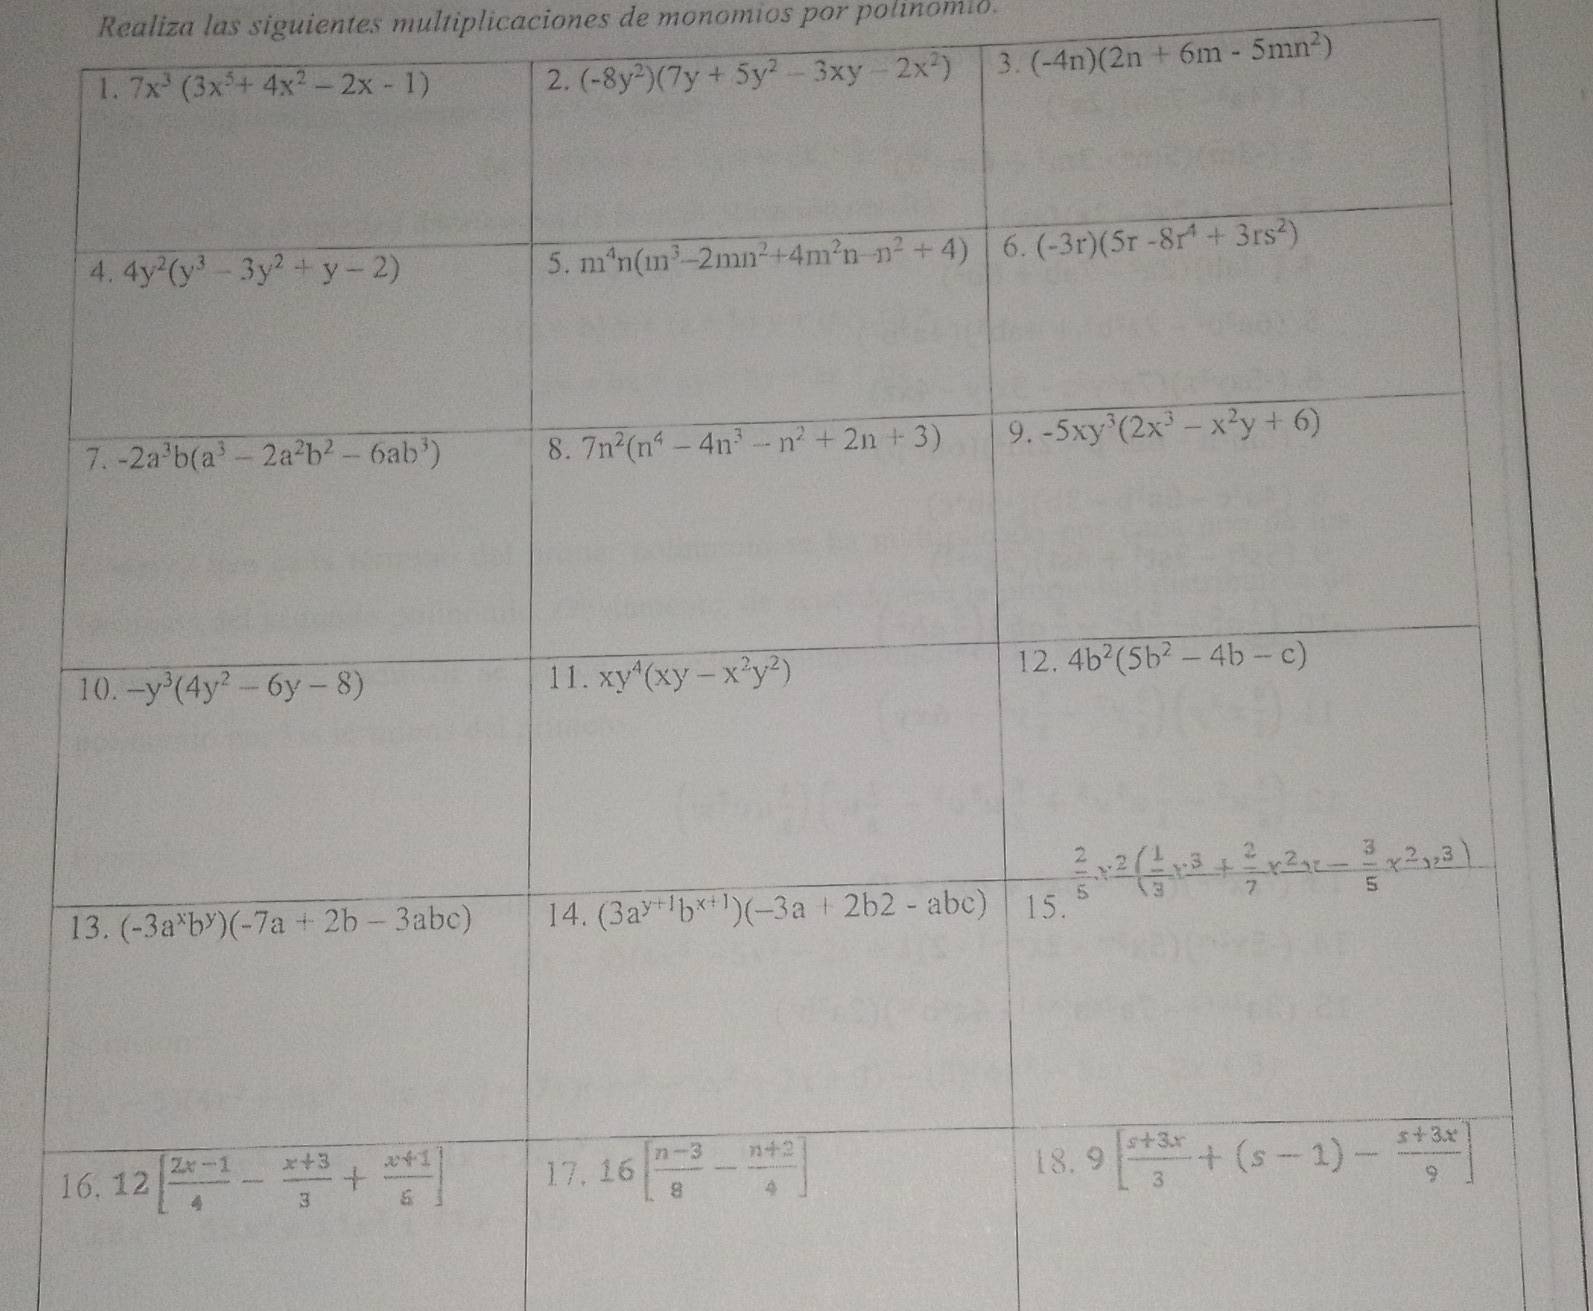 Realiza las siguientes multiplicaciones de monomios por polinomio.
1. 7x³ (3x⁵+ 4x² – 2x - 1)
2. (-8y²)(7y + 5y² – 3xy – 2x²)
3. (-4n)(2n + 6m - 5mn²)
4. 4y²(y³ – 3y² + y – 2)
5. m⁴n(m³–2mn²+4m²n–n² + 4)
6. (-3r)(5r -8r⁴ + 3rs²)
7. -2a³b(a³ – 2a²b² – 6ab³)
8. 7n²(n⁴ – 4n³ – n² + 2n + 3)
9. -5xy³(2x³ – x²y + 6)
10. –y³(4y² – 6y – 8)
11. xy⁴(xy – x²y²)
12. 4b²(5b² – 4b – c)
13. (-3aˣbʸ)(-7a + 2b – 3abc)
14. (3aʸ⁺¹bˣ⁺¹)(–3a + 2b2 - abc)
15.
16. 12 [(2x–1)/4 – (x+3)/3 + (x+1)/6]
17. 16 [(n–3)/8 – (n+2)/4]
18. 9 [(s+3x)/3 + (s – 1) – (s+3x)/9]